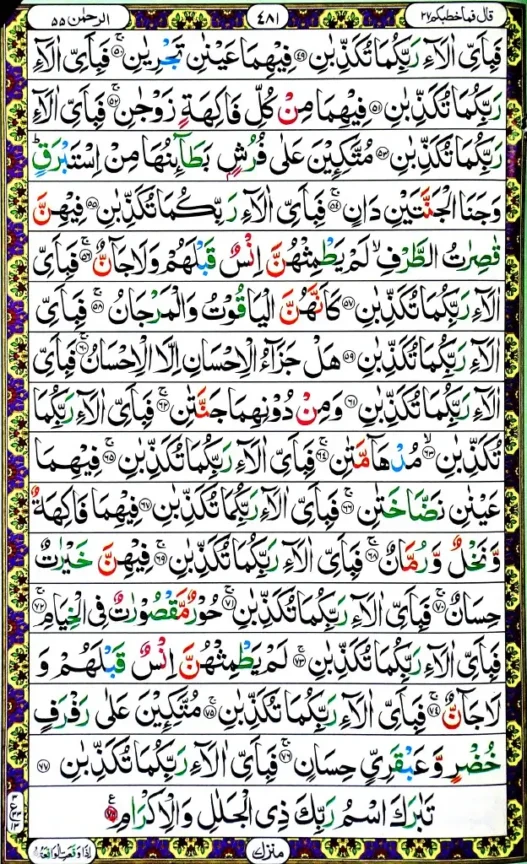 قال فما خطبكم ٢٧
٤٨١
الرحمٰن ٥٥
فَبِاَیِّ اٰلَآءِ رَبِّكُمَا تُكَذِّبٰنِ ۝۴۹ فِیْهِمَا عَیْنٰنِ تَجْرِیٰنِ ۝۵۰ۚ فَبِاَیِّ اٰلَآءِ
رَبِّكُمَا تُكَذِّبٰنِ ۝۵۱ فِیْهِمَا مِنْ كُلِّ فَاكِهَةٍ زَوْجٰنِ ۝۵۲ۚ فَبِاَیِّ اٰلَآءِ
رَبِّكُمَا تُكَذِّبٰنِ ۝۵۳ مُتَّكِـِٕیْنَ عَلٰی فُرُشٍۭ بَطَآىِٕنُهَا مِنْ اِسْتَبْرَقٍ ؕ
وَ جَنَا الْجَنَّتَیْنِ دَانٍ ۝۵۴ۚ فَبِاَیِّ اٰلَآءِ رَبِّكُمَا تُكَذِّبٰنِ ۝۵۵ فِیْهِنَّ
قٰصِرٰتُ الطَّرْفِ ۙ لَمْ یَطْمِثْهُنَّ اِنْسٌ قَبْلَهُمْ وَ لَا جَآنٌّ ۝۵۶ۚ فَبِاَیِّ
اٰلَآءِ رَبِّكُمَا تُكَذِّبٰنِ ۝۵۷ۚ كَاَنَّهُنَّ الْیَاقُوْتُ وَ الْمَرْجَانُ ۝۵۸ۚ فَبِاَیِّ
اٰلَآءِ رَبِّكُمَا تُكَذِّبٰنِ ۝۵۹ هَلْ جَزَآءُ الْاِحْسَانِ اِلَّا الْاِحْسَانُ ۝۶۰ۚ فَبِاَیِّ
اٰلَآءِ رَبِّكُمَا تُكَذِّبٰنِ ۝۶۱ وَ مِنْ دُوْنِهِمَا جَنَّتٰنِ ۝۶۲ۚ فَبِاَیِّ اٰلَآءِ رَبِّكُمَا
تُكَذِّبٰنِ ۝۶۳ۙ مُدْهَآمَّتٰنِ ۝۶۴ۚ فَبِاَیِّ اٰلَآءِ رَبِّكُمَا تُكَذِّبٰنِ ۝۶۵ۚ فِیْهِمَا
عَیْنٰنِ نَضَّاخَتٰنِ ۝۶۶ۚ فَبِاَیِّ اٰلَآءِ رَبِّكُمَا تُكَذِّبٰنِ ۝۶۷ فِیْهِمَا فَاكِهَةٌ
وَّ نَخْلٌ وَّ رُمَّانٌ ۝۶۸ۚ فَبِاَیِّ اٰلَآءِ رَبِّكُمَا تُكَذِّبٰنِ ۝۶۹ۚ فِیْهِنَّ خَیْرٰتٌ
حِسَانٌ ۝۷۰ۚ فَبِاَیِّ اٰلَآءِ رَبِّكُمَا تُكَذِّبٰنِ ۝۷۱ۚ حُوْرٌ مَّقْصُوْرٰتٌ فِی الْخِیَامِ ۝۷۲ۚ
فَبِاَیِّ اٰلَآءِ رَبِّكُمَا تُكَذِّبٰنِ ۝۷۳ۚ لَمْ یَطْمِثْهُنَّ اِنْسٌ قَبْلَهُمْ وَ
لَا جَآنٌّ ۝۷۴ۚ فَبِاَیِّ اٰلَآءِ رَبِّكُمَا تُكَذِّبٰنِ ۝۷۵ۚ مُتَّكِـِٕیْنَ عَلٰی رَفْرَفٍ
خُضْرٍ وَّ عَبْقَرِیٍّ حِسَانٍ ۝۷۶ۚ فَبِاَیِّ اٰلَآءِ رَبِّكُمَا تُكَذِّبٰنِ ۝۷۷
تَبٰرَكَ اسْمُ رَبِّكَ ذِی الْجَلٰلِ وَ الْاِكْرَامِ ۝۷۸
منزل ٧
اذا وقعت الواقعة